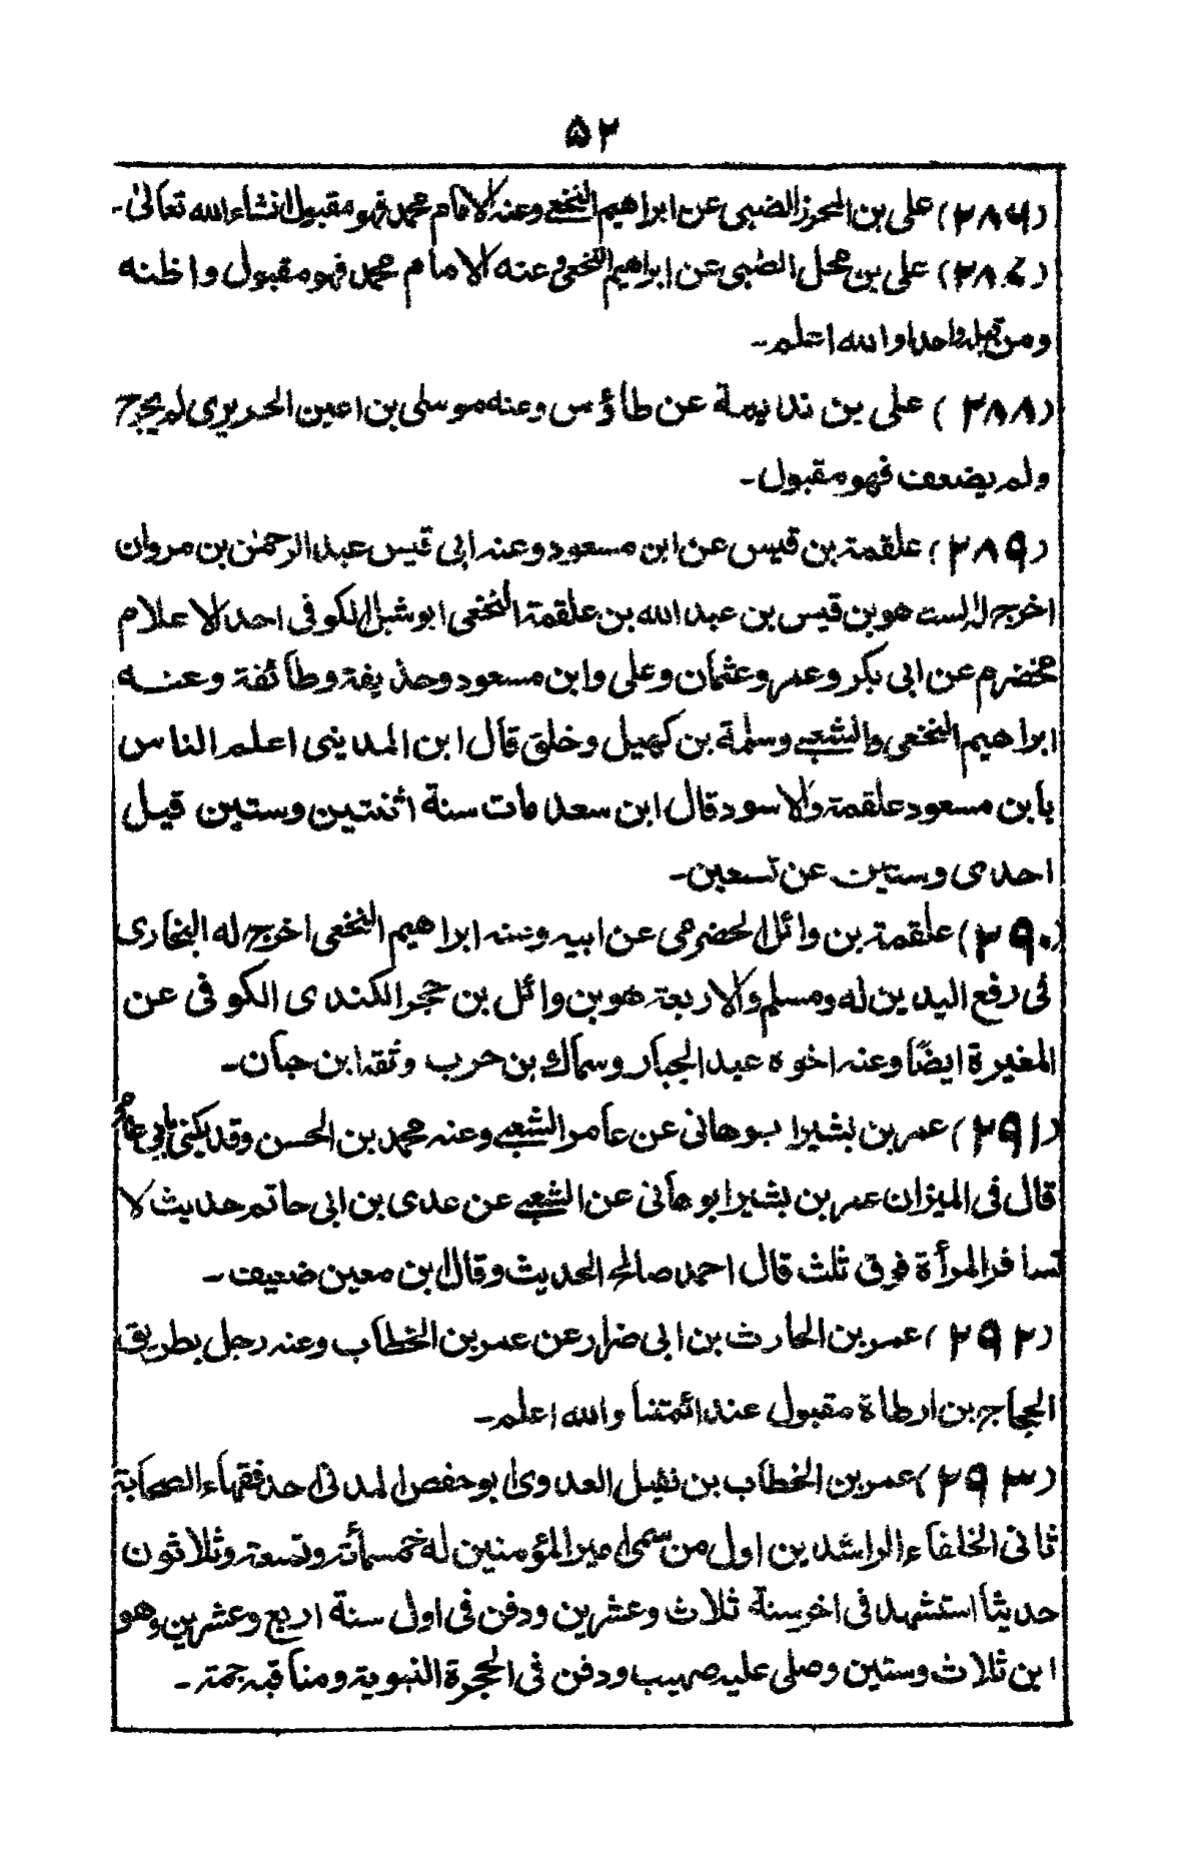 ۵۲
(۲۸۶) علی بن المحرز الضبی عن ابراهیم النخعی وعنہ الامام محمد فهو مقبول انشاء اللہ تعالیٰ۔
(۲۸۷) علی بن محل الضبی عن ابراهیم النخعی وعنه الامام محمد فهو مقبول واظنه
ومن قبلہ واحدا واللہ اعلم۔
(۲۸۸) علی بن ندیمة عن طاؤس وعنه موسلی بن اعین الحریری لم یجرح
ولم یضعف فهو مقبول۔
(۲۸۹) علقمة بن قیس عن ابن مسعود وعنه ابی قیس عبد الرحمٰن بن مروان
اخرج له الست هو بن قیس بن عبد اللہ بن علقمة النخعی ابو شبل الکوفی احد الاعلام
مخضرم عن ابی بکر وعمر وعثمان وعلی وابن مسعود وحذیفة وطائفة وعنه
ابراهیم النخعی والشعبی وسلمة بن کهیل وخلق قال ابن المدینی اعلم الناس
بابن مسعود علقمة والاسود قال ابن سعد مات سنة اثنتین وستین قیل
احدی وستین عن تسعین۔
(۲۹۰) علقمة بن وائل الحضرمی عن ابیه وعنه ابراهیم النخعی اخرج له البخاری
فی رفع الیدین له ومسلم والاربعة هو بن وائل بن حجر الکندی الکوفی عن
المغیرة ایضًا وعنه اخوه عبد الجبار وسماك بن حرب وثقه ابن حبان۔
(۲۹۱) عمر بن بشیر ابو هانی عن عامر الشعبی وعنه محمد بن الحسن وقد یکنی بابی
قال فی المیزان عمر بن بشیر ابو هانی عن الشعبی عن عدی بن ابی حاتم حدیث لا
تسافر المرأة فوق ثلث قال احمد صالح الحدیث وقال ابن معین ضعیف۔
(۲۹۲) عمر بن الحارث بن ابی ضرار عن عمر بن الخطاب وعنه رجل بطریق
الحجاج بن ارطاة مقبول عند ائمتنا واللہ اعلم۔
(۲۹۳) عمر بن الخطاب بن نفیل العدوی ابو حفص المدنی احد فقهاء الصحابة
ثانی الخلفاء الراشدین اول من سمی امیر المؤمنین له خمسمأة وتسعة وثلاثون
حدیثاً استشهد فی اخر سنة ثلاث وعشرین ودفن فی اول سنة اربع وعشرین وهو
ابن ثلاث وستین وصلی علیه صهیب ودفن فی الحجرة النبویة ومناقبه جمة۔